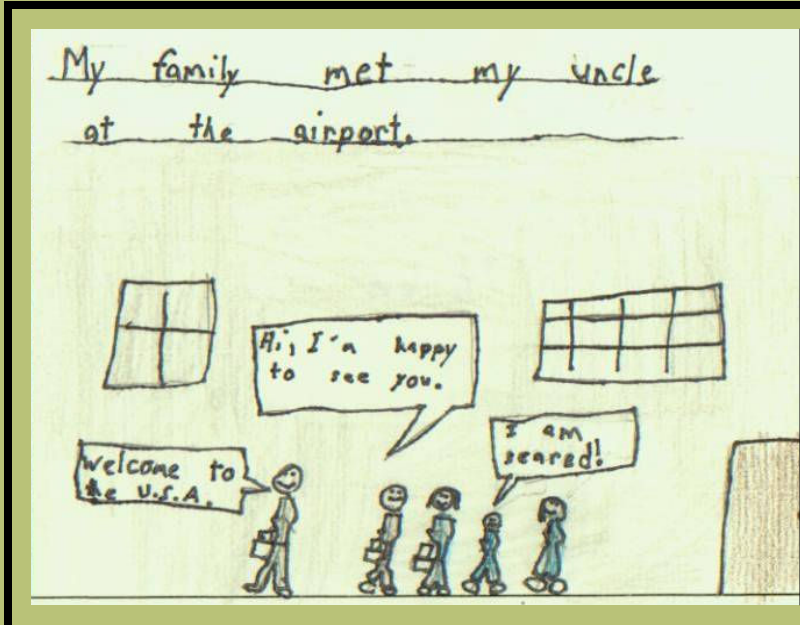 My family met my uncle
at the airport.
Hi, I'm happy
to see you.
Welcome to
the U.S.A.
I am
scared!